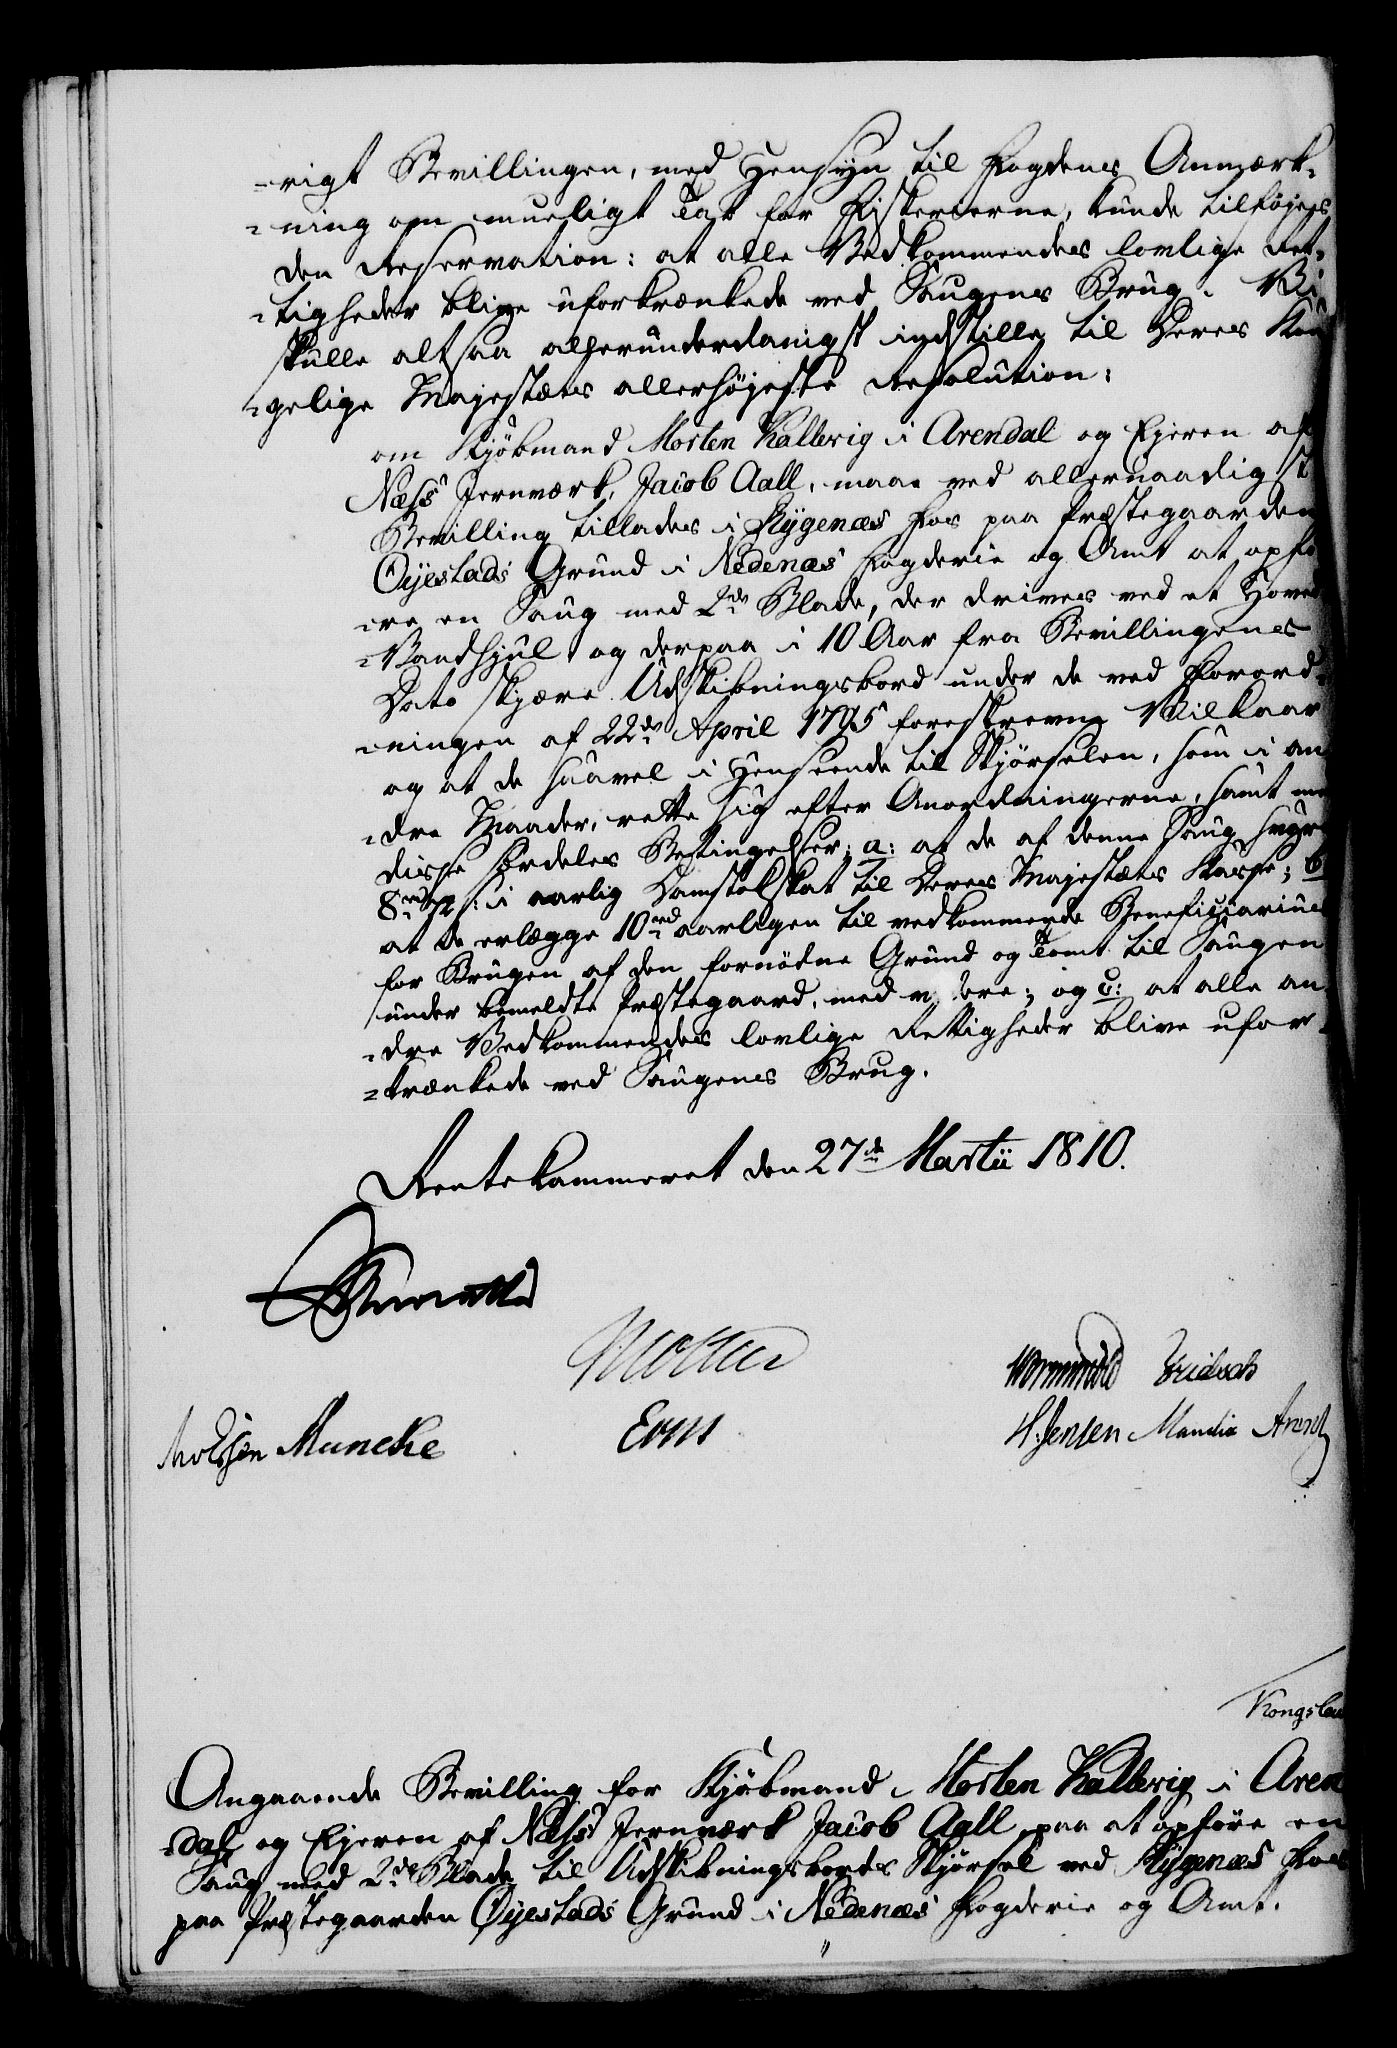 -rigt Bevillingen, med Hensyn til Fogdens Anmærk-
-ning om mueligt Tab for Fiskerierne, kunde tilføjes
den Reservation: at alle Vedkommendes lovlige Ret-
-tigheder blive uforkrænkede ved Saugens Brug. Vi
skulle altsaa allerunderdanigst indstille til Deres Kon
-gelige Majestæts allerhøjeste Resolution:
om Kjøbmand Morten Kallevig i Arendal og Ejeren af
Næss Jernværk, Jacob Aall, maae ved allernaadigst
Bevilling tillades i Rygenæs Fos paa Præstegaarden
Øyestads Grund i Nedenæs Fogderie og Amt at opfø
-re en Saug med 2de Blade, der drives ved et Hoved
-Vandhjul og derpaa i 10 Aar fra Bevillingens
Dato skjære Udskibningsbord under de ved Forord-
-ningen af 22de April 1795 foreskrevne Vilkaar
og at de saavel i Henseende til Skjørselen, som i an
-dre Maader, rette sig efter Anordningerne, samt med
disse særdeles Betingelser: a: at de af denne Saug svare
8 rd aarlig Damstolskat til Deres Majestæts Kasse; b
at de erlægge 10 rd aarligen til vedkommende Beneficiarius
for Brugen af den fornødne Grund og Tomt til Saugen
under bemeldte Præstegaard, med videre; og c: at alle an
-dre Vedkommendes lovlige Rettigheder blive ufor-
-krænkede ved Saugens Brug.
Rentekammeret den 27de Martii 1810.
Wormskiold
H. Jensen
Muncke
Kongslew
Angaaende Bevilling for Kjøbmand Morten Kallevig i Aren
-dal og Ejeren af Næss Jernværk Jacob Aall paa at opføre en
Saug med 2de Blade til Udskibningsbords Skjørsel ved Rygenæs Foss
paa Præstegaarden Øyestads Grund i Nedenæs Fogderie og Amt.